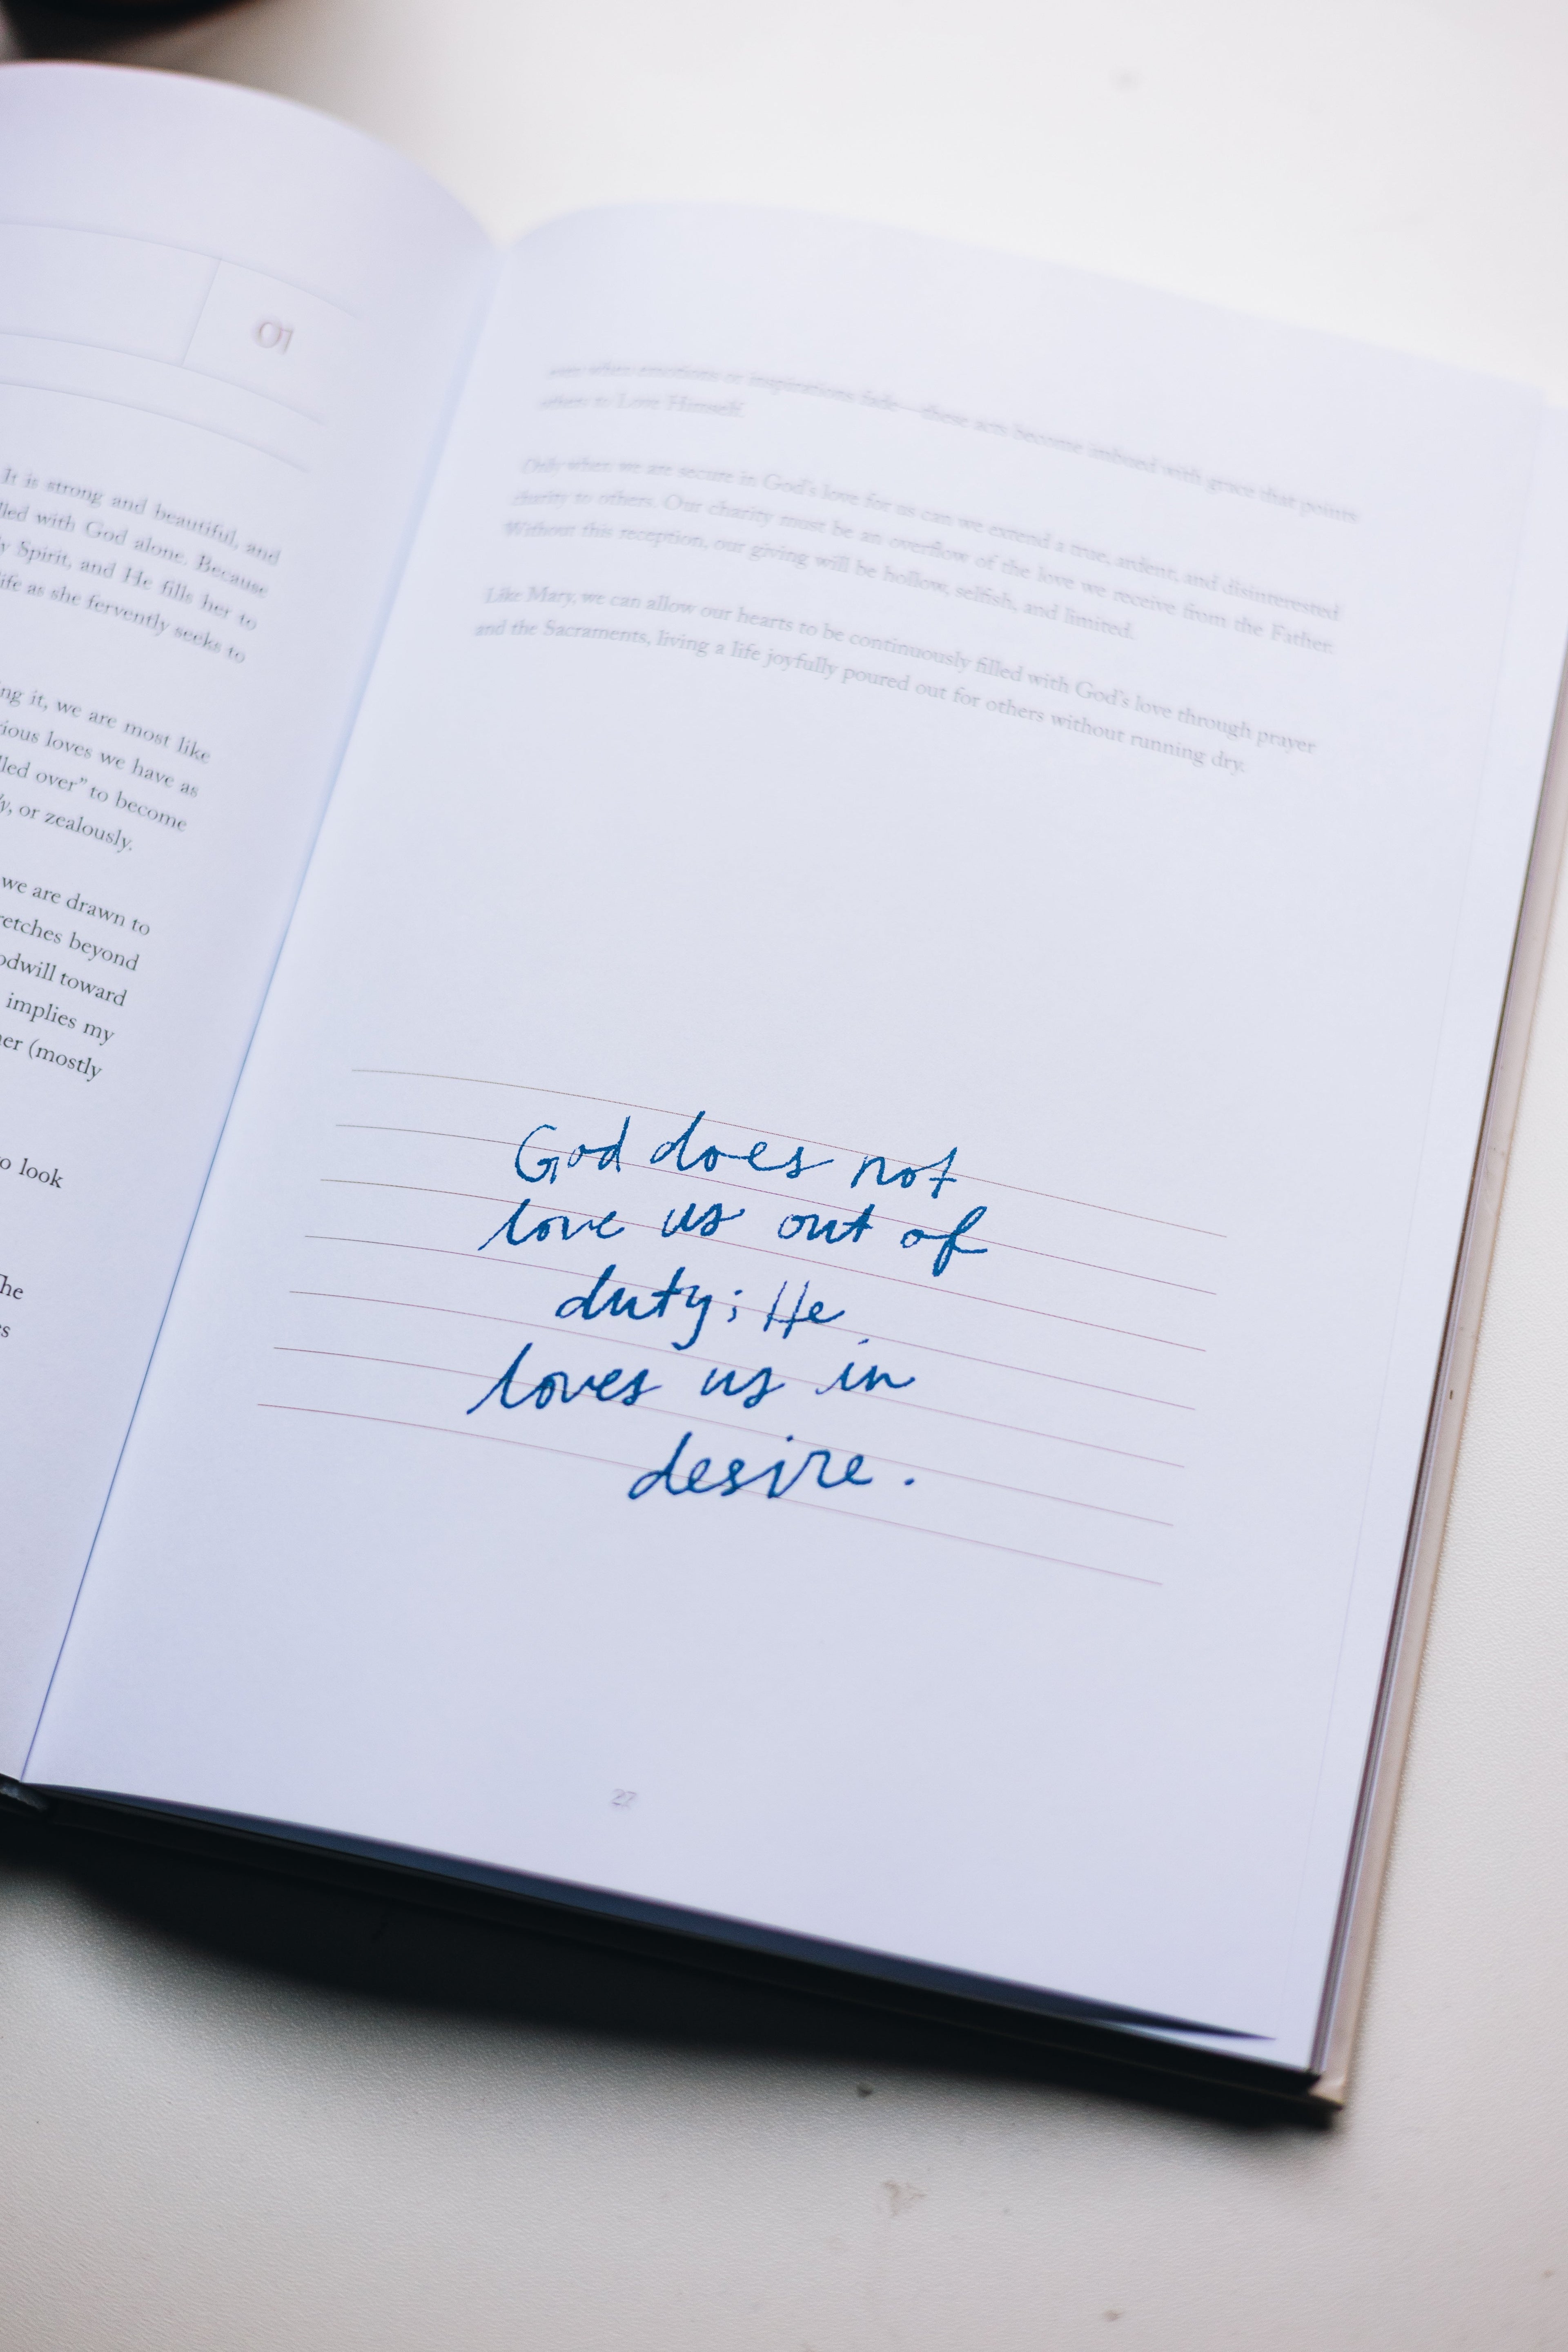 01
It is strong and beautiful, and
lled with God alone. Because
y Spirit, and He fills her to
ife as she fervently seeks to
ng it, we are most like
rious loves we have as
lled over” to become
y, or zealously.
we are drawn to
retches beyond
odwill toward
implies my
er (mostly
o look
The
es
even when emotions or inspirations fade—these acts become imbued with grace that points
others to Love Himself.
Only when we are secure in God’s love for us can we extend a true, ardent, and disinterested
charity to others. Our charity must be an overflow of the love we receive from the Father.
Without this reception, our giving will be hollow, selfish, and limited.
Like Mary, we can allow our hearts to be continuously filled with God’s love through prayer
and the Sacraments, living a life joyfully poured out for others without running dry.
God does not
love us out of
duty; He
loves us in
desire.
27